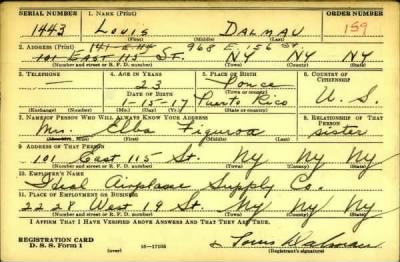 SERIAL NUMBER 1. NAME (Print) ORDER NUMBER
1443 LOUIS DALMAU 159
(First) (Middle) (Last)
2. ADDRESS (Print) 141 E. 44 968 E. 156 St
101 EAST 115 ST. NY NY NY
(Number and street or R. F. D. number) (Town) (County) (State)
3. TELEPHONE 4. AGE IN YEARS 5. PLACE OF BIRTH 6. COUNTRY OF CITIZENSHIP
— 23 Ponce
DATE OF BIRTH (Town or county)
1-15-17 Puerto Rico U. S.
(Exchange) (Number) (Mo.) (Day) (Yr.) (State or country)
7. NAME OF PERSON WHO WILL ALWAYS KNOW YOUR ADDRESS 8. RELATIONSHIP OF THAT PERSON
Mrs. Elba Figueroa sister
(Mr., Mrs., Miss) (First) (Middle) (Last)
9. ADDRESS OF THAT PERSON
101 East 115 St. Ny Ny Ny
(Number and street or R. F. D. number) (Town) (County) (State)
10. EMPLOYER'S NAME
Ideal Airplane Supply Co.
11. PLACE OF EMPLOYMENT OR BUSINESS
22-28 West 19 St Ny Ny Ny
(Number and street or R. F. D. number) (Town) (County) (State)
I AFFIRM THAT I HAVE VERIFIED ABOVE ANSWERS AND THAT THEY ARE TRUE.
REGISTRATION CARD
D. S. S. Form 1 (over) 16—17105 Louis Dalmau
(Registrant's signature)